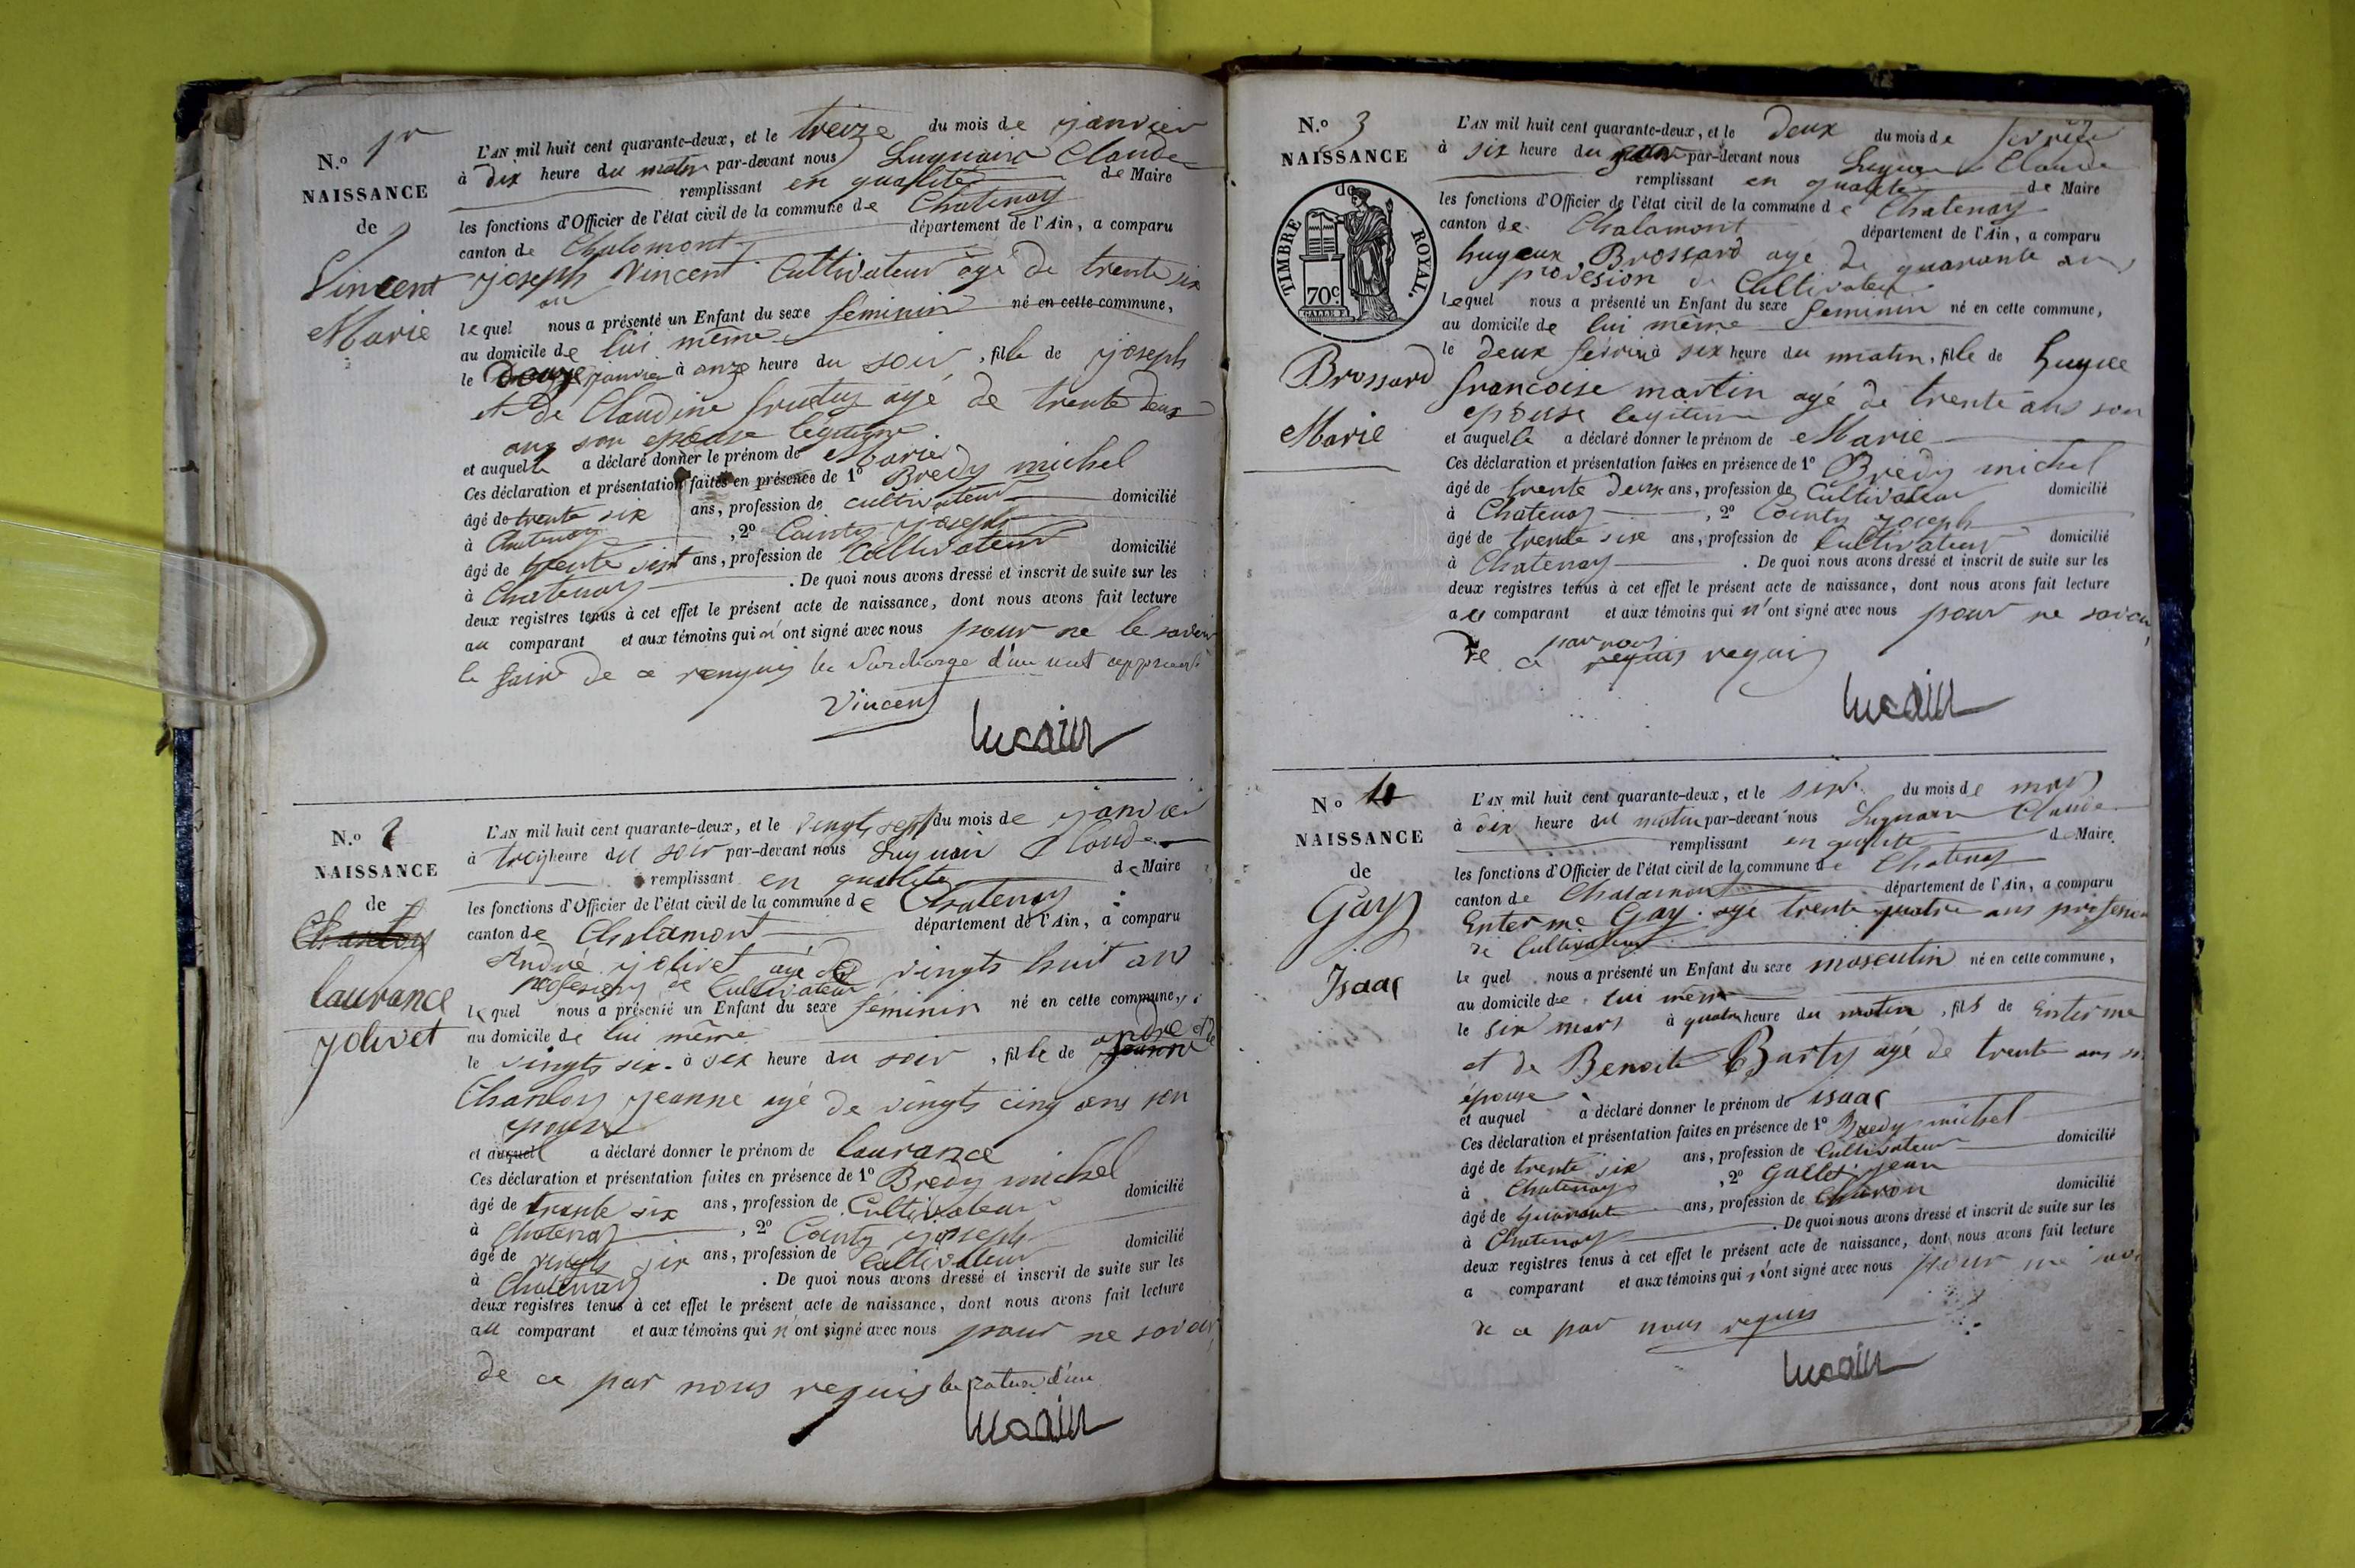 N.º 1er
NAISSANCE
de
Vincent
Marie
L'AN mil huit cent quarante-deux, et le treize du mois de janvier
à dix heure du matin par-devant nous Luquain Claude
remplissant en qualité de Maire
les fonctions d'Officier de l'état civil de la commune de Chatenay
canton de Chalamont département de l'Ain, a comparu
joseph Vincent Cultivateur âgé de trente six
an
lequel nous a présenté un Enfant du sexe féminin né en cette commune,
au domicile de lui même
le douze janvier à onze heure du soir, fille de joseph
et de Claudine agé de trente deux
ans son epouse légitime
et auquelle a déclaré donner le prénom de Marie
Ces déclaration et présentation faites en présence de 1º Bredy michel
âgé de trente six ans, profession de cultivateur domicilié
à Chatenay, 2º Cointy joseph
âgé de trente sixt ans, profession de Cultivateur domicilié
à Chatenay. De quoi nous avons dressé et inscrit de suite sur les
deux registres tenus à cet effet le présent acte de naissance, dont nous avons fait lecture
au comparant et aux témoins qui n'ont signé avec nous pour ne le savoir
le faire de ce la Surcharge d'un mot
Vincent
lucain
N.º 2
NAISSANCE
de
Chanloy
laurance
jolivet
L'AN mil huit cent quarante-deux, et le vingt sept du mois de janvier
à trois heure du soir par-devant nous Luquain Claude
remplissant en qualite de Maire
les fonctions d'Officier de l'état civil de la commune de Chatenay
canton de Chalamont département de l'Ain, a comparu
André jolivet agé de vingts huit ans
profession de Cultivateur
lequel nous a présenté un Enfant du sexe féminin né en cette commune,
au domicile de lui même andre et de
le vingts six à six heure du soir, fille de
Chanloy jeanne agé de vingts cinq ans son
epouse
et auquel a déclaré donner le prénom de laurance
Ces déclaration et présentation faites en présence de 1º Bredy michel
âgé de trente six ans, profession de Cultivateur domicilié
à Chatenay, 2º Cointy joseph
âgé de vingts six ans, profession de Cultivateur domicilié
à Chatenay. De quoi nous avons dressé et inscrit de suite sur les
deux registres tenus à cet effet le présent acte de naissance, dont nous avons fait lecture
au comparant et aux témoins qui n'ont signé avec nous pour ne savoir
de ce par nous requis la d'un
lucain
N.º 3
NAISSANCE
de
TIMBRE ROYAL.
70c
Brossard
Marie
L'AN mil huit cent quarante-deux, et le deux du mois de fevrier
à six heure du par-devant nous Luquain Claude
remplissant en qualite de Maire
les fonctions d'Officier de l'état civil de la commune de Chatenay
canton de Chalamont département de l'Ain, a comparu
Brossard agé de quarante ans
provesion de Cultivateur
lequel nous a présenté un Enfant du sexe feminin né en cette commune,
au domicile de lui même
le deux fevrie à six heure du matin, fille de
francoise martin agé de trente ans son
epouse legitime
et auquelle a déclaré donner le prénom de Marie
Ces déclaration et présentation faites en présence de 1º Bredy michel
âgé de trente deux ans, profession de Cultivateur domicilié
à Chatenay, 2º Cointy joseph
âgé de trente six ans, profession de Cultivateur domicilié
à Chatenay. De quoi nous avons dressé et inscrit de suite sur les
deux registres tenus à cet effet le présent acte de naissance, dont nous avons fait lecture
a comparant et aux témoins qui n'ont signé avec nous pour ne savoir
par nous
de ce requis requis
lucain
Nº 4
NAISSANCE
de
Gay
Isaac
L'AN mil huit cent quarante-deux, et le six du mois de mars
à dix heure du matin par-devant nous Luquain Claude
remplissant en qualite de Maire
les fonctions d'Officier de l'état civil de la commune de Chatenay
canton de Chalamont département de l'Ain, a comparu
Enterme Gay agé trente quatre ans profession
de Cultivateur
lequel nous a présenté un Enfant du sexe masculin né en cette commune,
au domicile de lui même
le six mars à quatre heure du matin, fils de Enterme
et de Benoite Barty agé de trente ans
épouse
et auquel à déclaré donner le prénom de isaac
Ces déclaration et présentation faites en présence de 1º Bredy michel
âgé de trente six ans, profession de Cultivateur domicilié
à Chatenay, 2º Gallet jean
âgé de quarante ans, profession de Charon domicilié
à Chatenay. De quoi nous avons dressé et inscrit de suite sur les
deux registres tenus à cet effet le présent acte de naissance, dont nous avons fait lecture
a comparant et aux témoins qui n'ont signé avec nous pour ne
de ce par nous requis
lucain